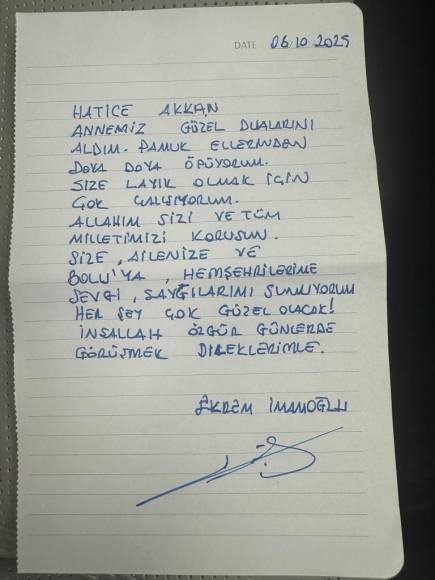 DATE 06/10 2025
HATİCE AKKAN
ANNEMİZ GÜZEL DUALARINI
ALDIM. PAMUK ELLERİNDEN
DOYA DOYA ÖPÜYORUM.
SİZE LAYIK OLMAK İÇİN
ÇOK ÇALIŞIYORUM.
ALLAHIM SİZİ VE TÜM
MİLLETİMİZİ KORUSUN.
SİZE, AİLENİZE VE
BOLU'YA, HEMŞEHRİLERİME
SEVGİ, SAYGILARIMI SUNUYORUM
HER ŞEY ÇOK GÜZEL OLACAK!
İNŞALLAH ÖZGÜR GÜNLERDE
GÖRÜŞMEK DİLEKLERİMLE.
EKREM İMAMOĞLU